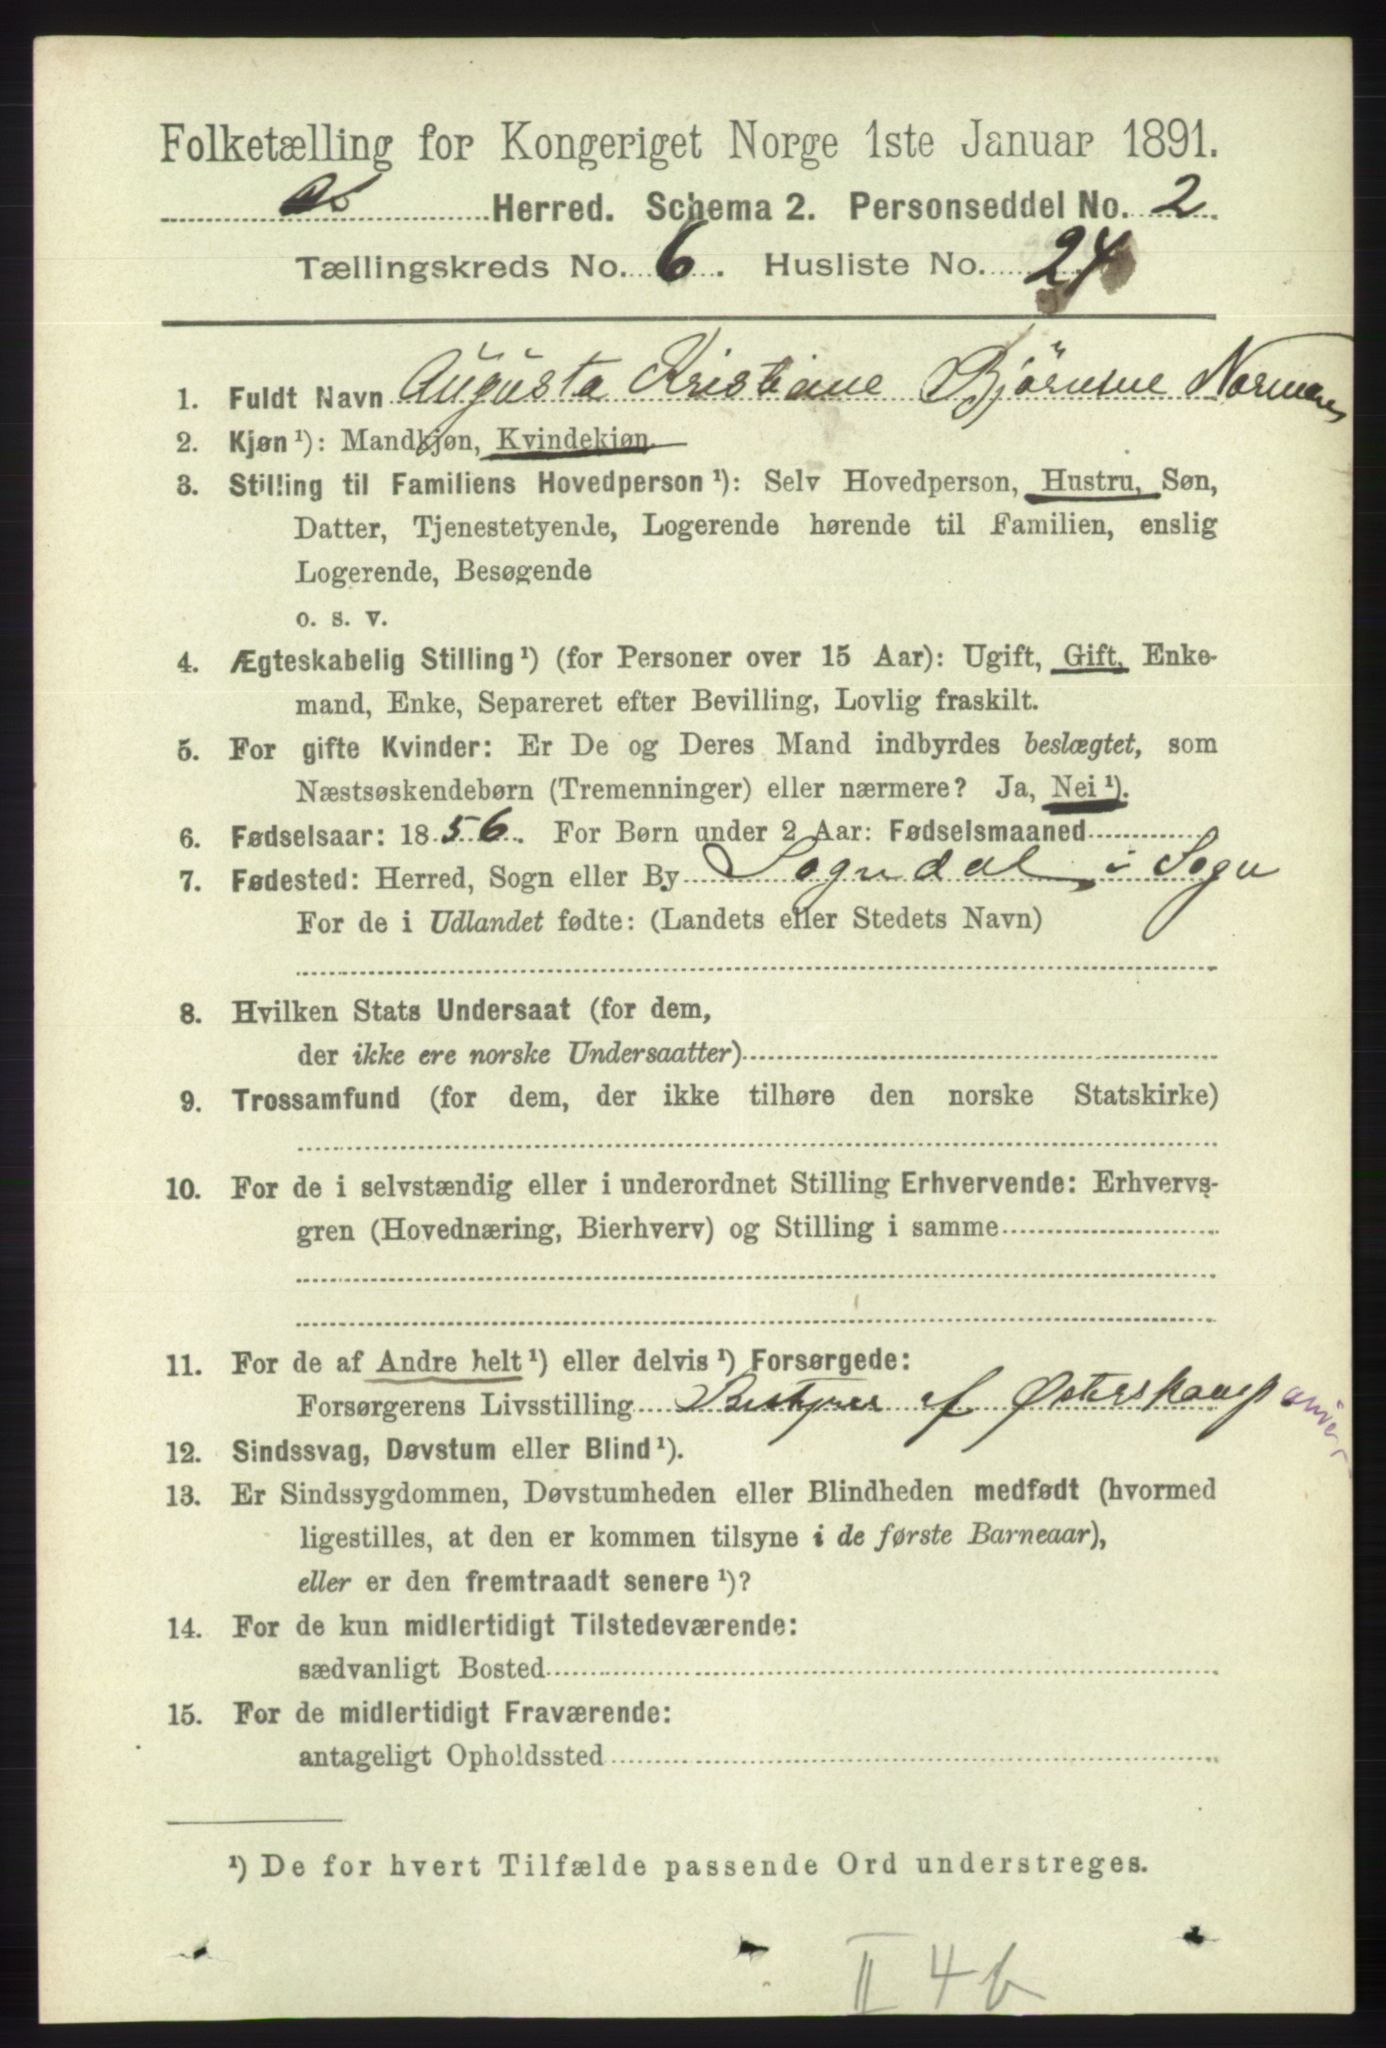 Folketælling for Kongeriget Norge 1ste Januar 1891.
Os Herred. Schema 2. Personseddel No. 2
Tællingskreds No. 6. Husliste No. 24
1. Fuldt Navn Augusta Kristiane Bjørnsine Normann
2. Kjøn ¹): Mandkjøn, Kvindekjøn
3. Stilling til Familiens Hovedperson ¹): Selv Hovedperson, Hustru, Søn,
Datter, Tjenestetyende, Logerende hørende til Familien, enslig
Logerende, Besøgende
o. s. v.
4. Ægteskabelig Stilling ¹) (for Personer over 15 Aar): Ugift, Gift, Enke-
mand, Enke, Separeret efter Bevilling, Lovlig fraskilt.
5. For gifte Kvinder: Er De og Deres Mand indbyrdes beslægtet, som
Næstsøskendebørn (Tremenninger) eller nærmere? Ja, Nei ¹).
6. Fødselsaar: 1856. For Børn under 2 Aar: Fødselsmaaned
7. Fødested: Herred, Sogn eller By Sogndal i Sogn
For de i Udlandet fødte: (Landets eller Stedets Navn)
8. Hvilken Stats Undersaat (for dem,
der ikke ere norske Undersaatter)
9. Trossamfund (for dem, der ikke tilhøre den norske Statskirke)
10. For de i selvstændig eller i underordnet Stilling Erhvervende: Erhvervs-
gren (Hovednæring, Bierhverv) og Stilling i samme
11. For de af Andre helt ¹) eller delvis ¹) Forsørgede:
Forsørgerens Livsstilling Bestyrer af Østerskomp
12. Sindssvag, Døvstum eller Blind ¹).
13. Er Sindssygdommen, Døvstumheden eller Blindheden medfødt (hvormed
ligestilles, at den er kommen tilsyne i de første Barneaar),
eller er den fremtraadt senere ¹)?
14. For de kun midlertidigt Tilstedeværende:
sædvanligt Bosted
15. For de midlertidigt Fraværende:
antageligt Opholdssted
¹) De for hvert Tilfælde passende Ord understreges.
II 4 b